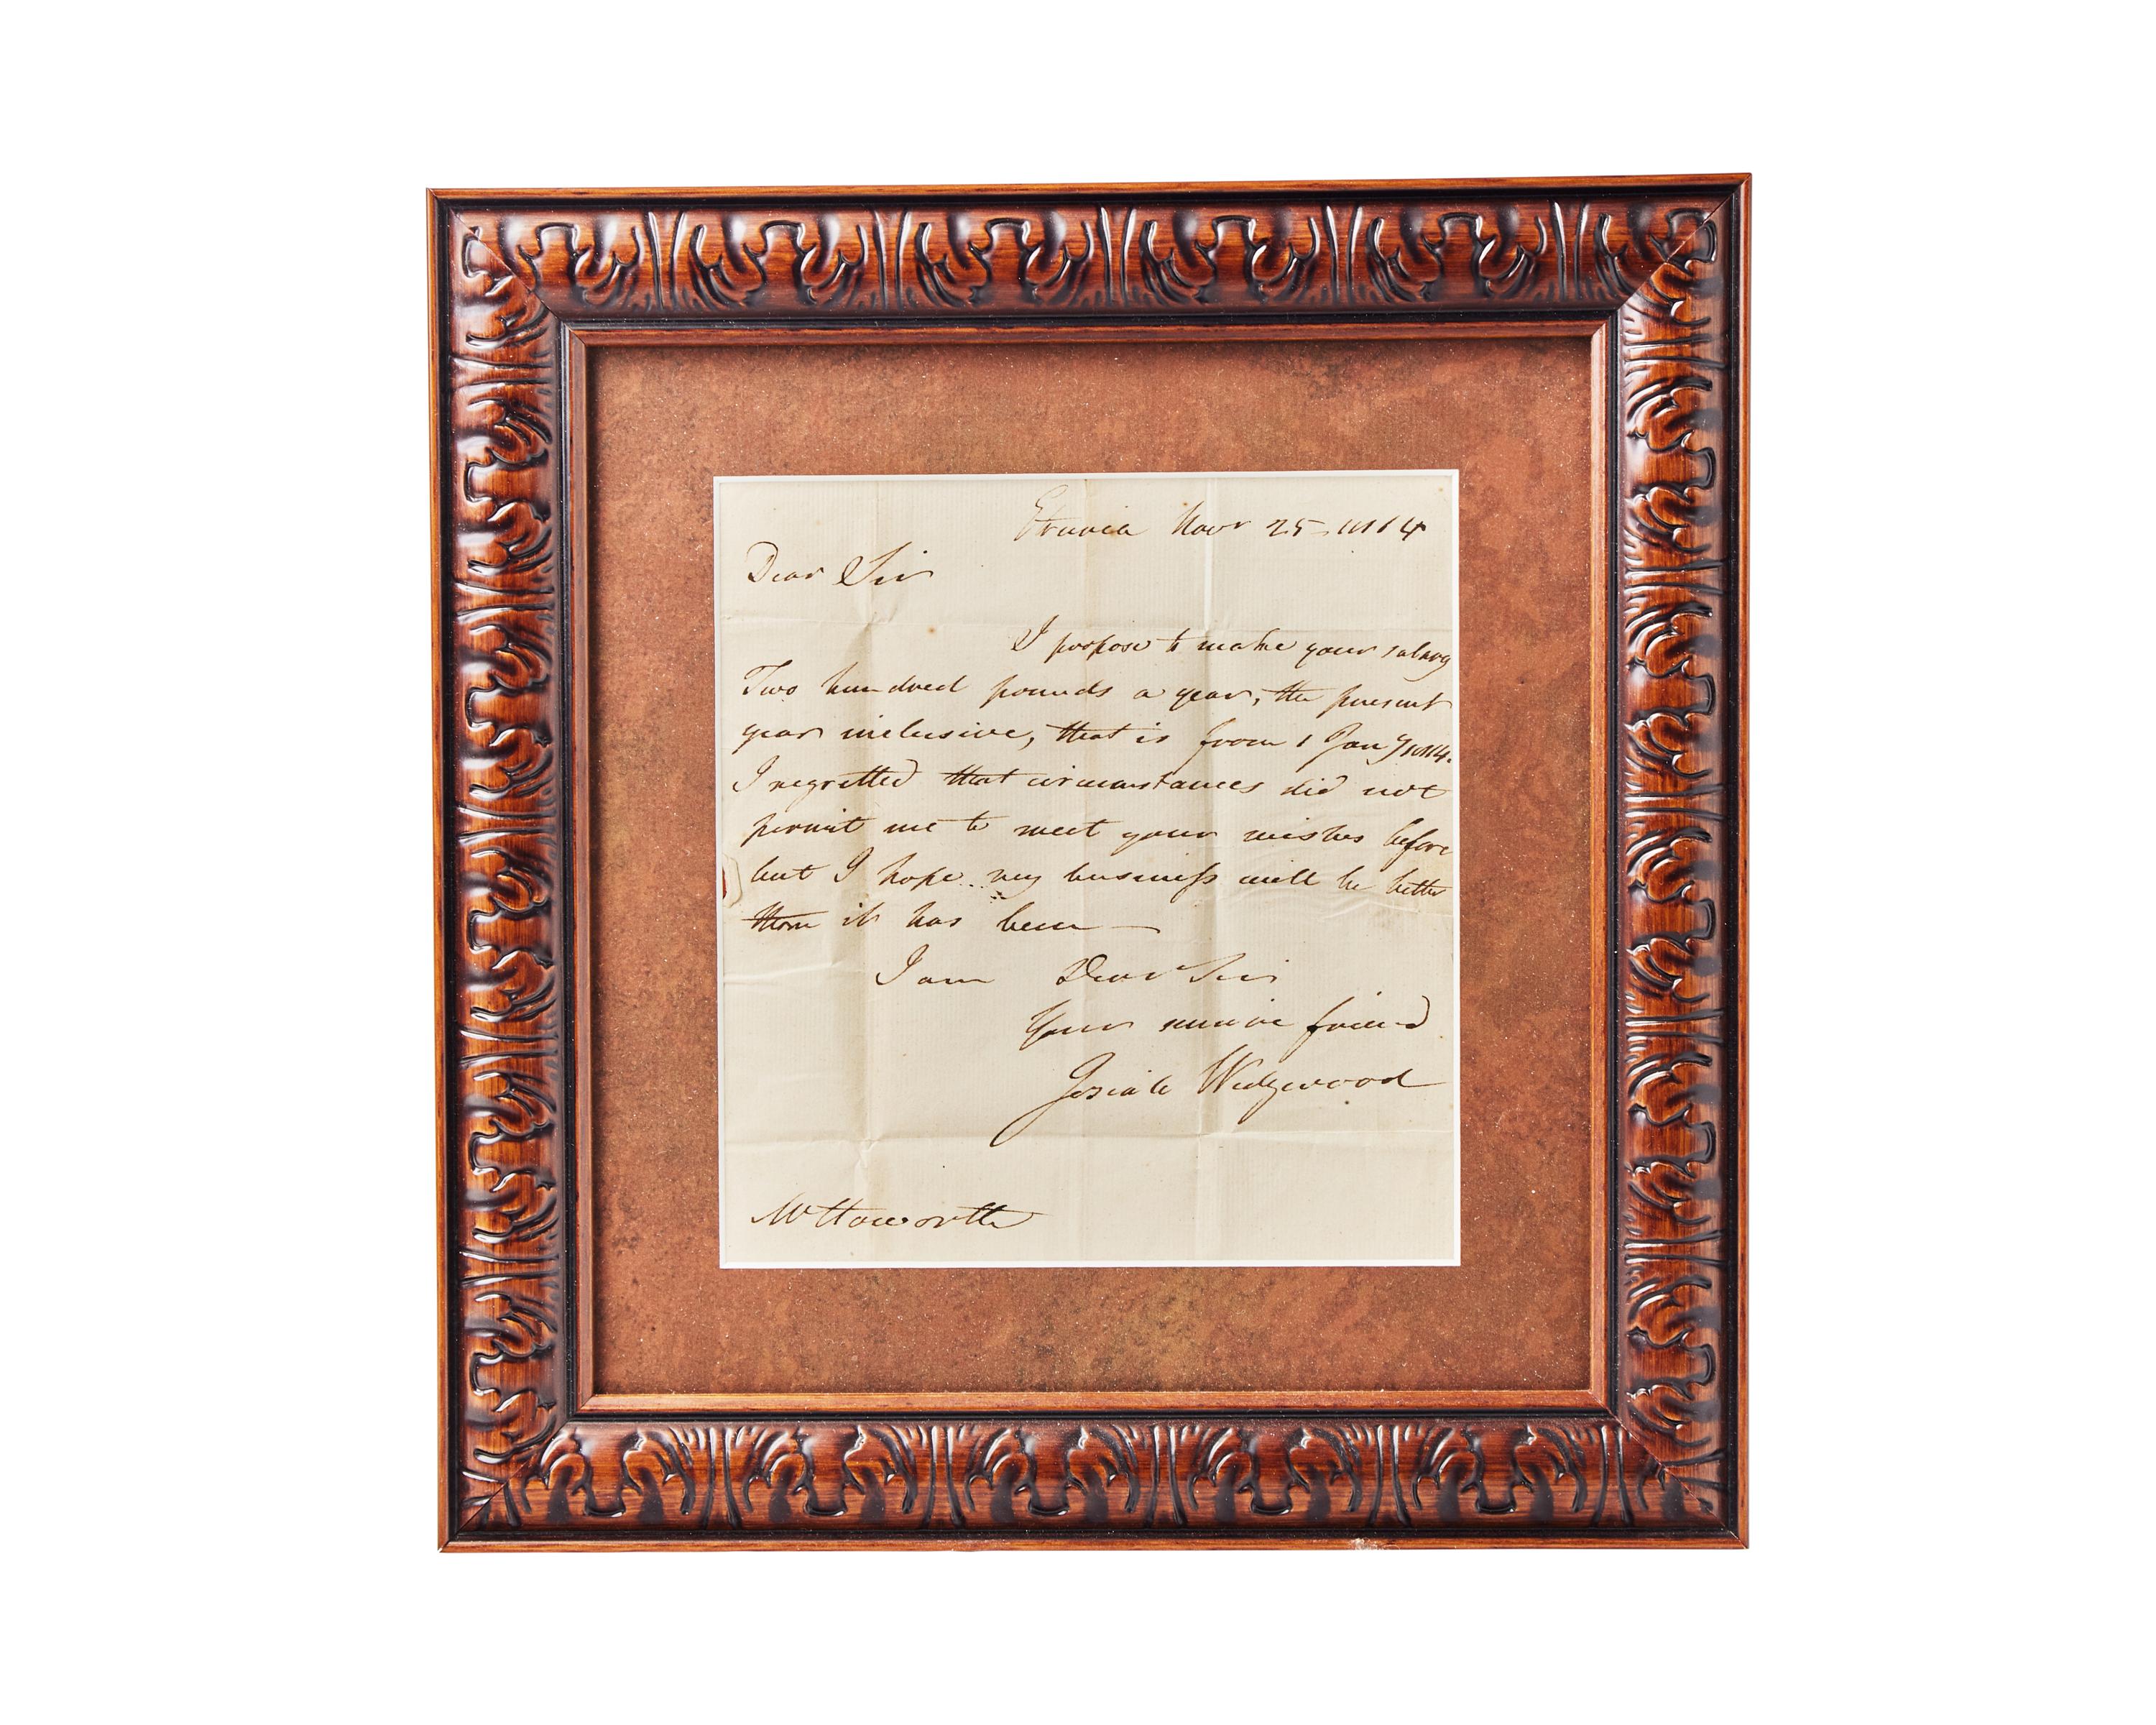 Etruria Novr 25 1814
Dear Sir
I propose to make your salary
Two hundred pounds a year, the present
year inclusive, that is from 1 Jany 1814.
I regretted that circumstances did not
permit me to meet your wishes before
but I hope my business will be better
than it has been —
I am Dear Sir
Your sincere friend
Josiah Wedgwood
Mr Howorth